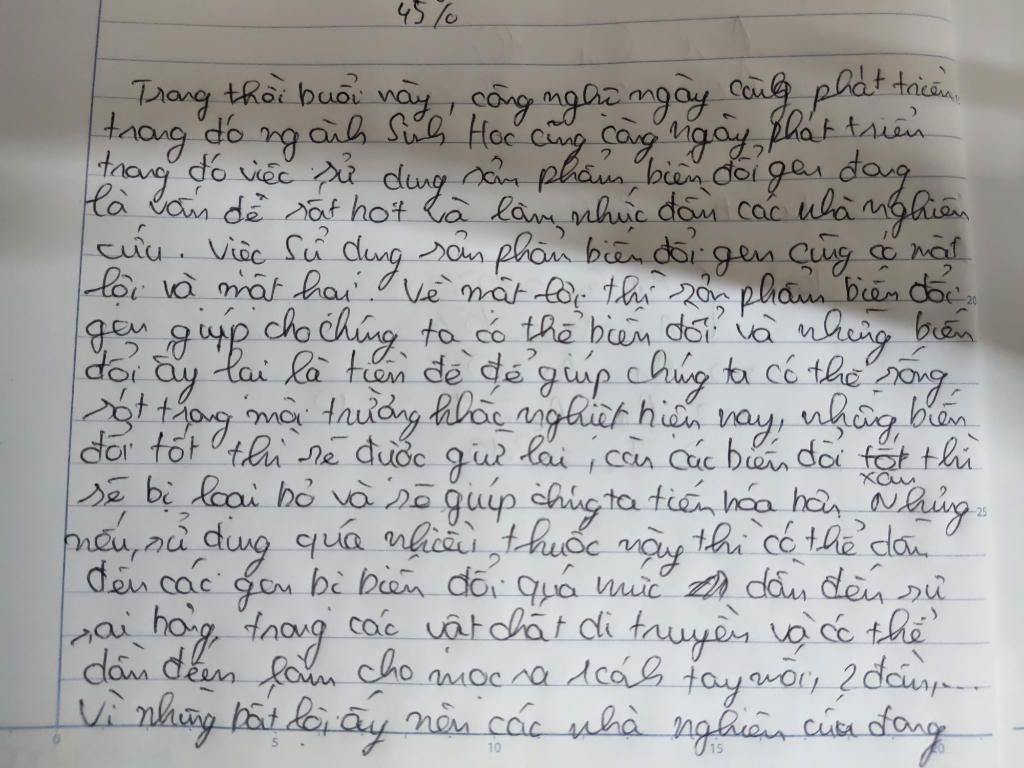 45%
Trong thời buổi này, công nghệ ngày càng phát triển
trong đó ngành Sinh Học cũng càng ngày phát triển
trong đó việc sử dụng sản phẩm biến đổi gen đang
là vấn đề rất hot và làm nhức đầu các nhà nghiên
cứu. Việc sử dụng sản phẩm biến đổi gen cũng có mặt
lợi và mặt hại. Về mặt lợi thì sản phẩm biến đổi
gen giúp cho chúng ta có thể biến đổi và những biến
đổi ấy lại là tiền đề để giúp chúng ta có thể sống
sót trong môi trường khắc nghiệt hiện nay, những biến
đổi tốt thì sẽ được giữ lại, còn các biến đổi xấu thì
sẽ bị loại bỏ và sẽ giúp chúng ta tiến hóa hơn. Nhưng
nếu sử dụng quá nhiều thuốc này thì có thể dẫn
đến các gen bị biến đổi quá mức dẫn đến sự
sai hỏng trong các vật chất di truyền và có thể
dẫn đến làm cho mọc ra 1 cánh tay mới, 2 đầu,...
Vì những bất lợi ấy nên các nhà nghiên cứu đang
0 5 10 15 20
20
25